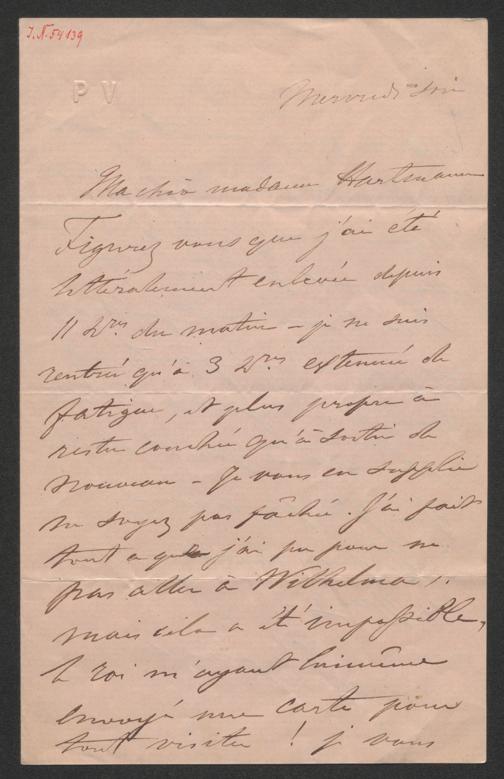 J.N. 54139
P V
Mercredi soir
Ma chère madame Hartmann
Figurez vous que j'ai été
littéralement enlevée depuis
11 h^res du matin – je ne suis
rentrée qu'à 3 h^res exténuée de
fatigue, et plus propre à
rester couchée qu'à sortir de
nouveau – Je vous en supplie
ne soyez pas fâchée. J'ai fait
tout ce que j'ai pu pour ne
pas aller à Wilhelma,
mais cela a été impossible,
le roi m'ayant lui même
envoyé une carte pour
tout visiter ! je vous